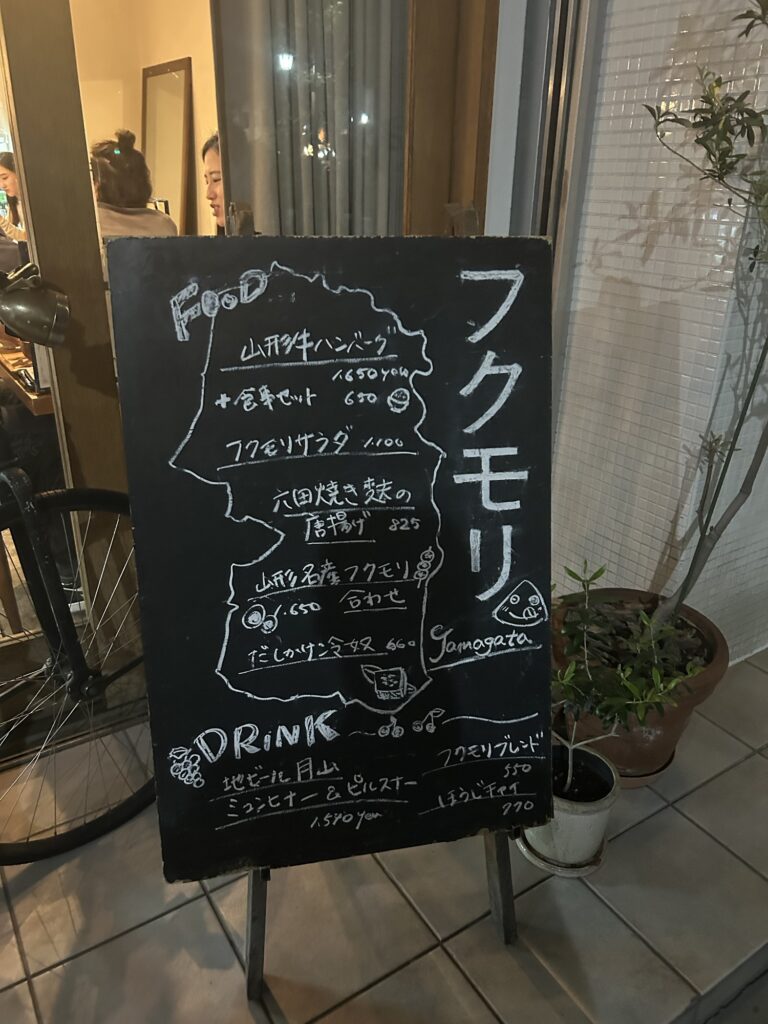 フクモリ
Yamagata
FOOD
山形牛ハンバーグ
1.650yen
+食事セット 650
フクモリサラダ 1.100
六田焼き麩の
唐揚げ 825
山形名産フクモリ
1.650 合わせ
だしかけ冷奴 660
DRiNK
地ビール月山
ミュンヒナー & ピルスナー
1.540yen
フクモリブレンド
550
ほうじチャイ
770